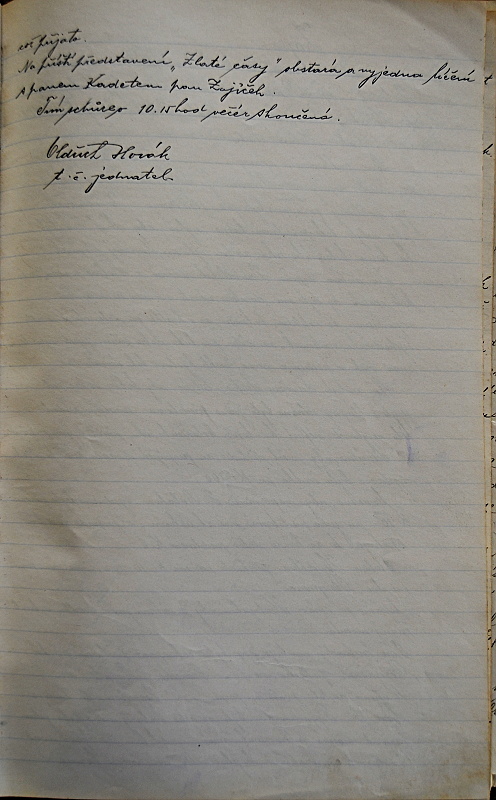 což přijato.
Na příští představení „Zlaté časy" obstará a vyjedna líčení
s panem Kadetem pan Zajíček.
Tím schůze o 10.15 hod večer skončená.
Oldřich Horák
t. č. jednatel.